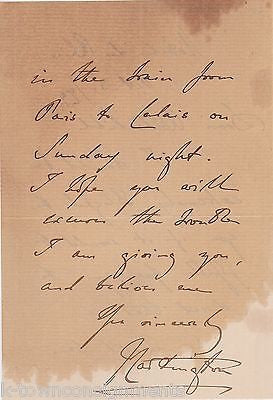 in the train from
Paris to Calais on
Sunday night.
I hope you will
excuse the trouble
I am giving you,
and believe me
Yrs sincerely
Hartington
k-townconsignments